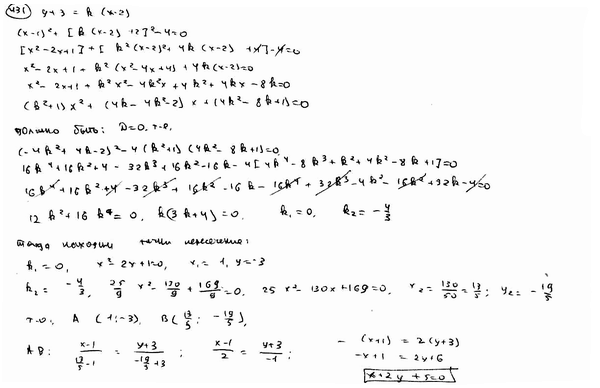 431 y+3 = k(x-2)
(x-1)²+ [k(x-2)+2]²-4=0
[x²-2x+1]+[k²(x-2)²+4k(x-2)+4]-4=0
x²-2x+1+k²(x²-4x+4)+4k(x-2)=0
x²-2x+1+k²x²-4k²x+4k²+4kx-8k=0
(k²+1)x²+(4k-4k²-2)x+(4k²-8k+1)=0
должно быть: D=0, т.е.
(-4k²+4k-2)²-4(k²+1)(4k²-8k+1)=0
16k⁴+16k²+4-32k³+16k²-16k-4[4k⁴-8k³+k²+4k²-8k+1]=0
16k⁴+16k²+4-32k³+16k²-16k-16k⁴+32k³-4k²-16k²+32k-4=0
12k²+16k=0, k(3k+4)=0, k₁=0, k₂=-4/3
тогда находим точки пересечения:
k₁=0, x²-2x+1=0, x₁=1, y=-3
k₂=-4/3, 25/9 x²-130/9+169/9=0, 25x²-130x+169=0, x₂=130/50=13/5; y₂=-19/5
т.о. A(1;-3), B(13/5; -19/5),
AB: (x-1)/(13/5-1) = (y+3)/(-19/5+3); (x-1)/2 = (y+3)/-1; -(x+1)=2(y+3)
-x+1=2y+6
x+2y+5=0